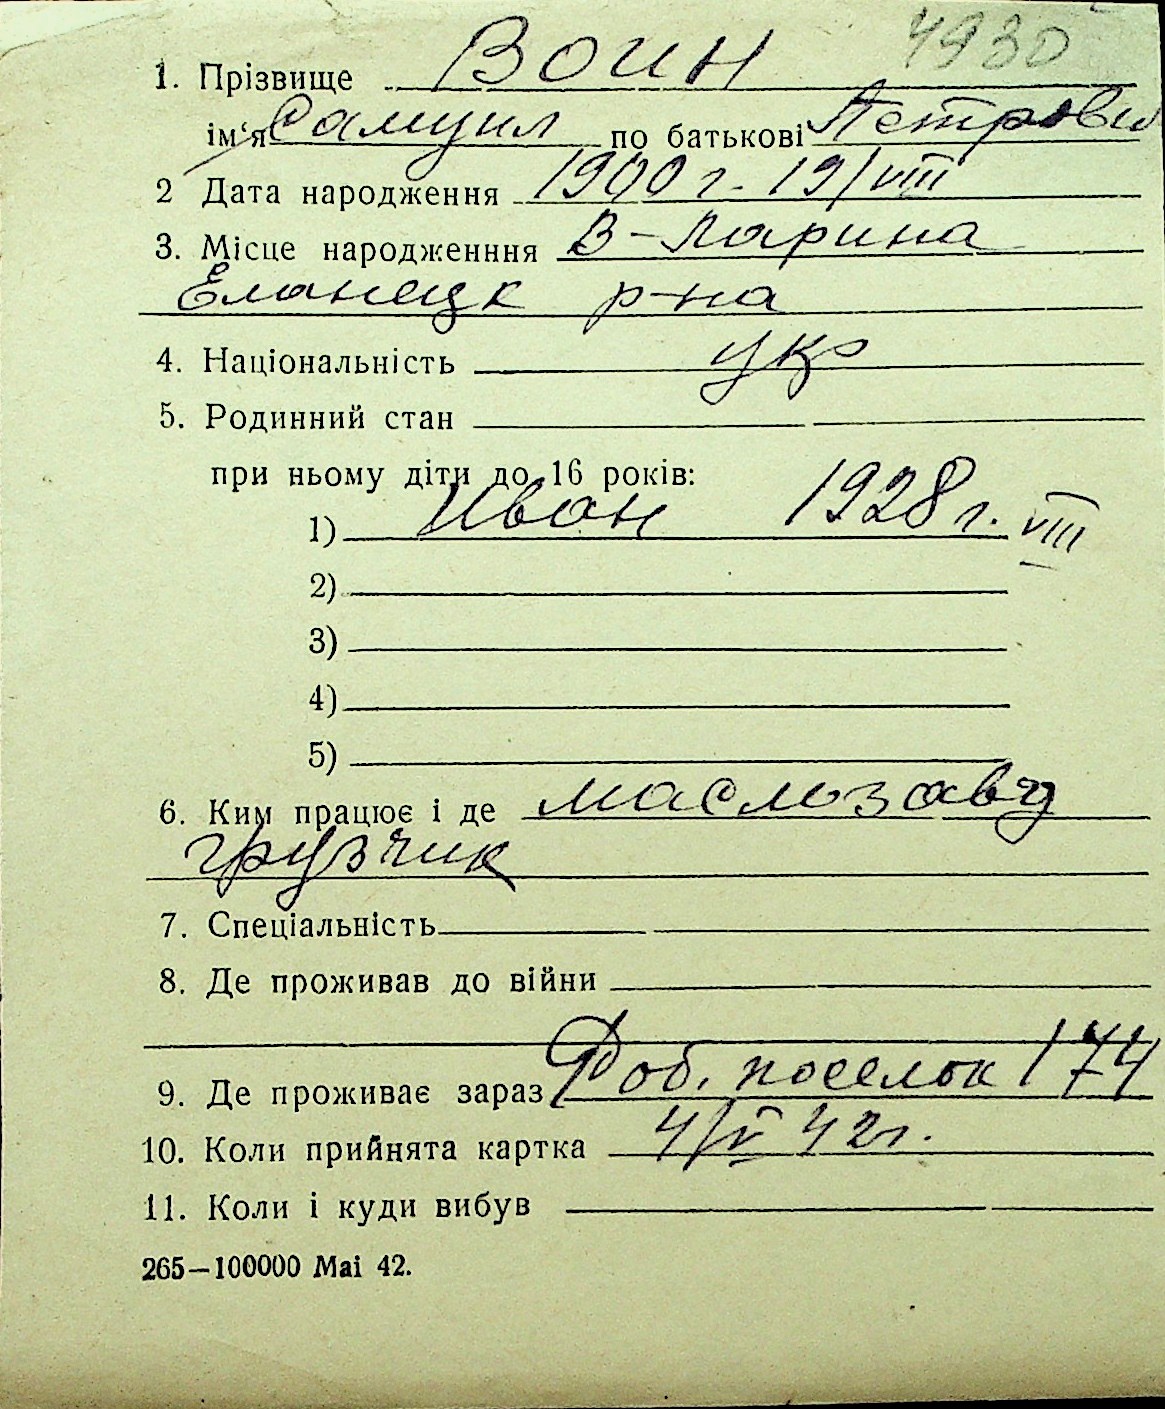 4930
1. Прізвище Воин
ім'я Самуил по батькові Петрович
2 Дата народження 1900 г. 19/VIII
3. Місце народженння В-Ларина
Еланецк р-на
4. Національність укр
5. Родинний стан
при ньому діти до 16 років:
1) Иван 1928 г. VIII
2)
3)
4)
5)
6. Ким працює і де маслозавд
грузчик
7. Спеціальність
8. Де проживав до війни
9. Де проживає зараз Роб. поселок 174
10. Коли прийнята картка 4/V 42 г.
11. Коли і куди вибув
265—100000 Mai 42.